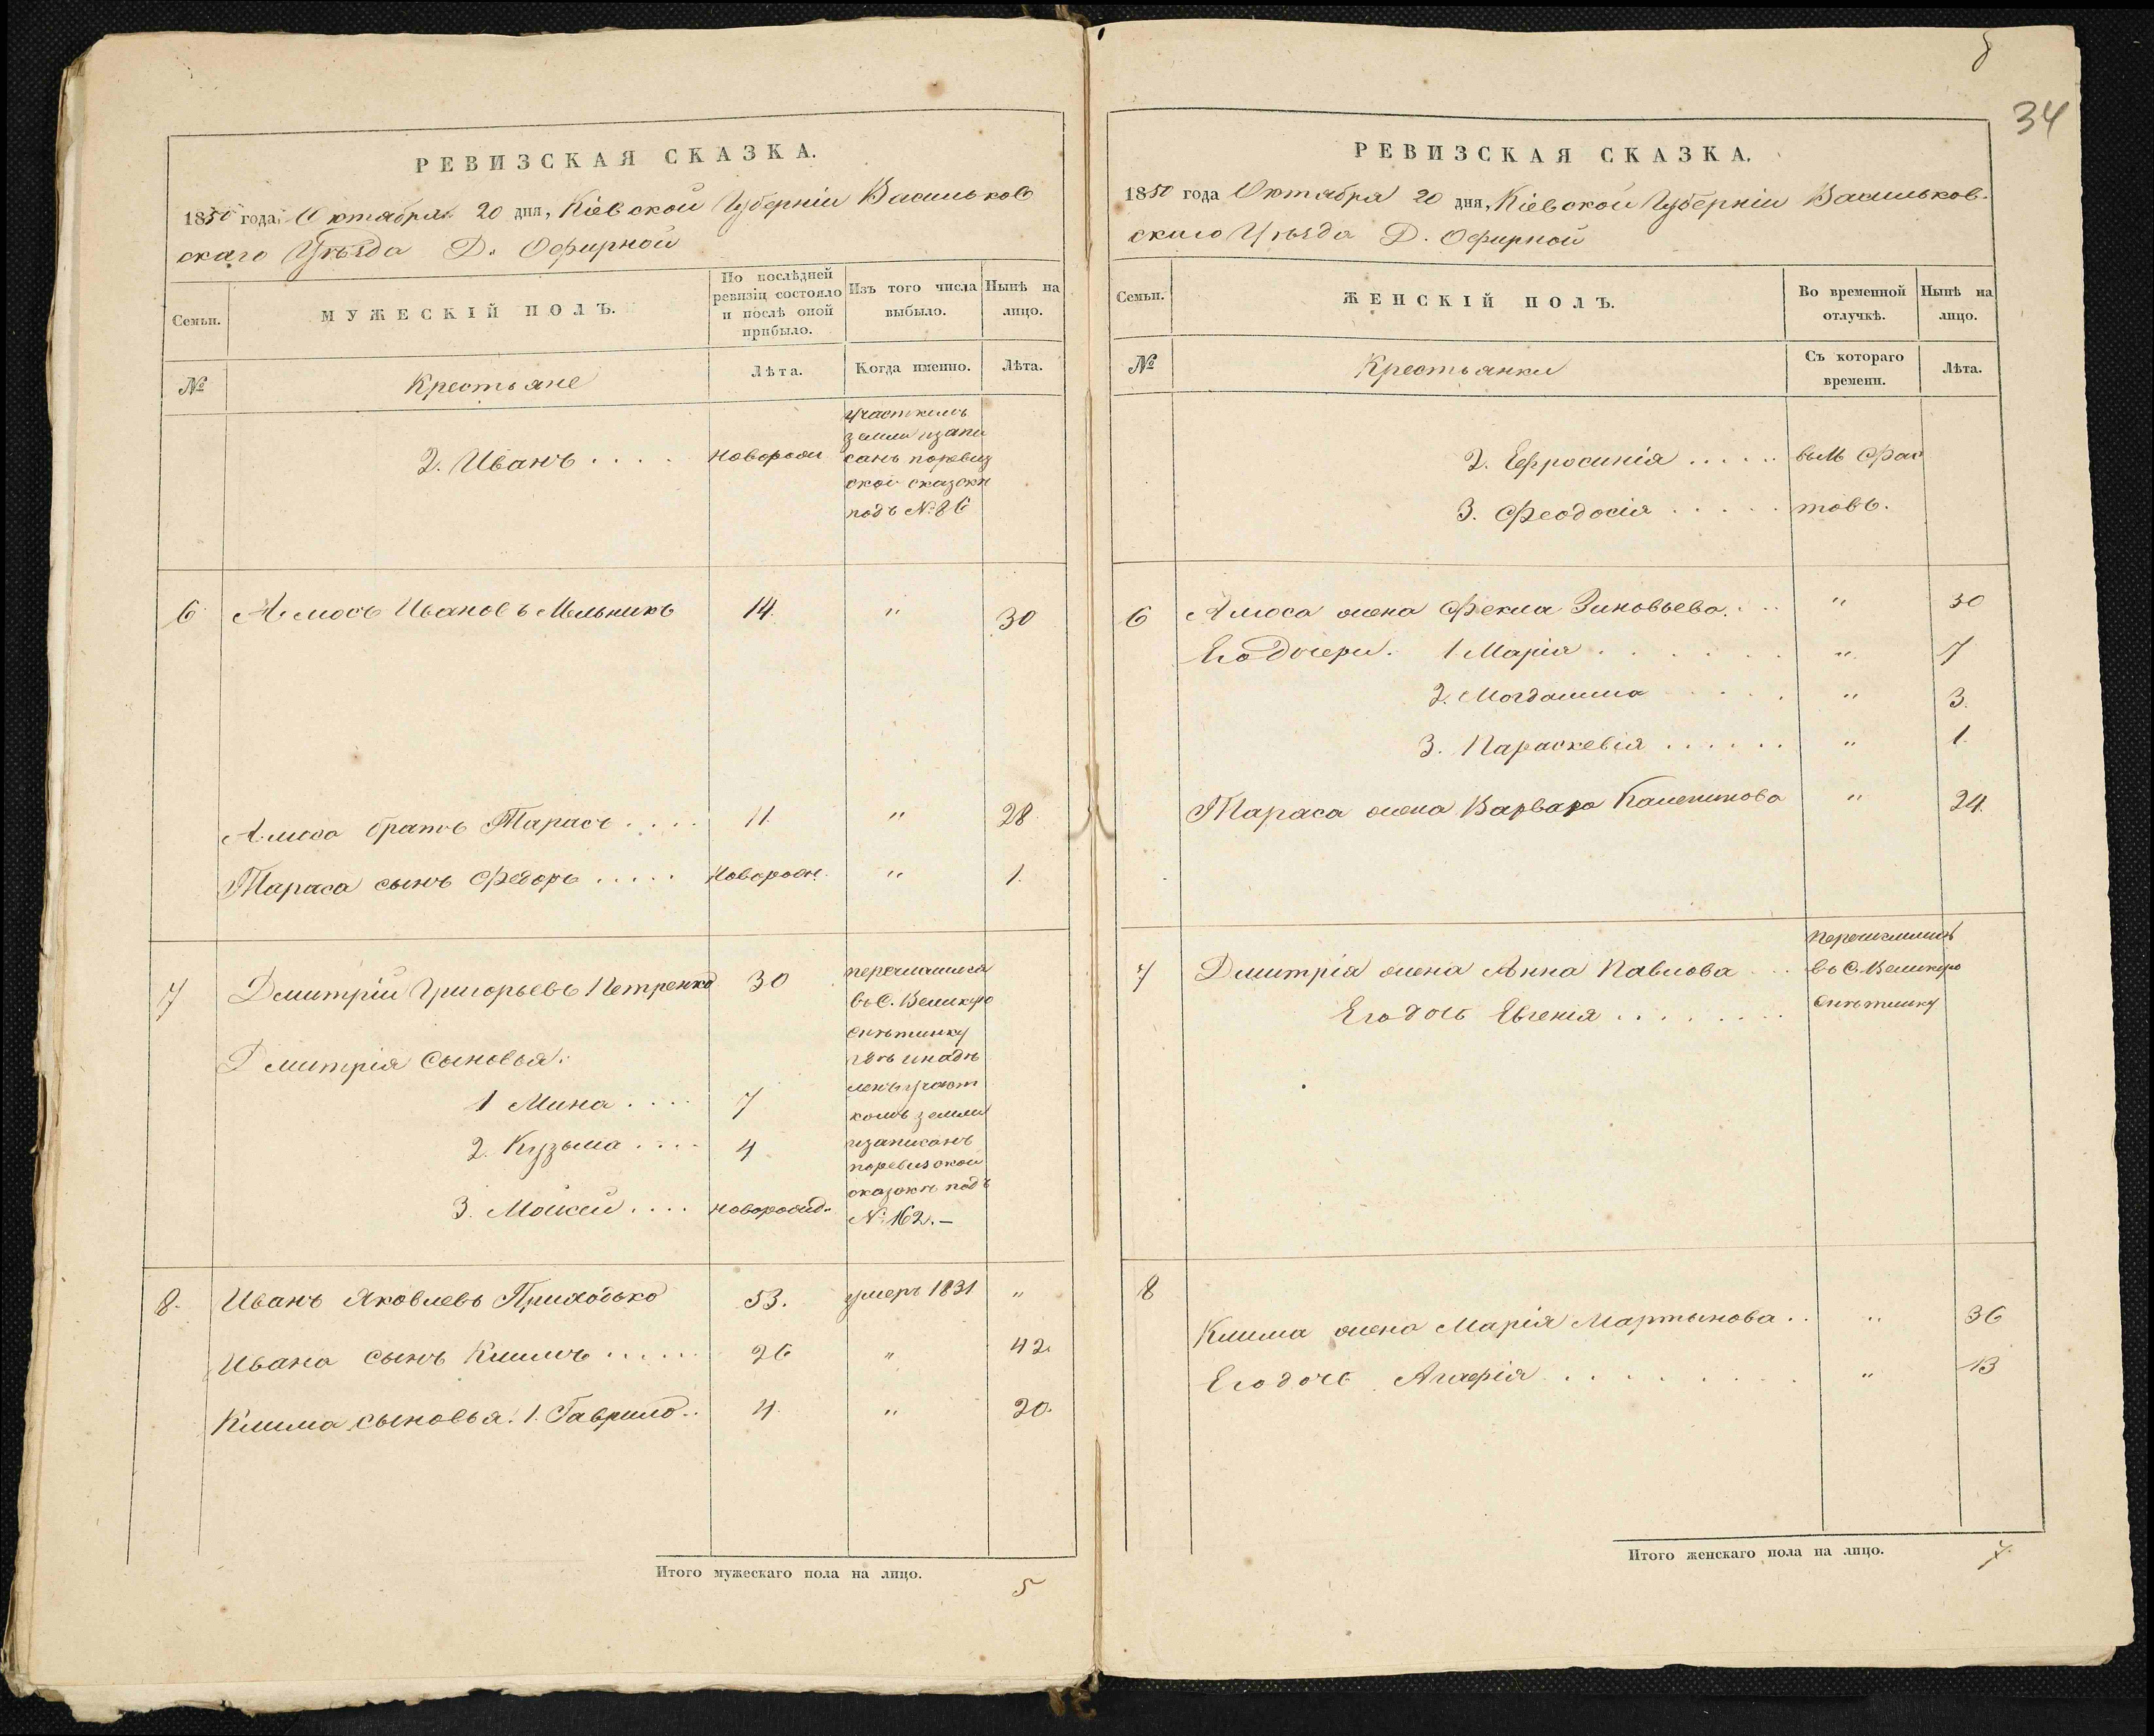 РЕВИЗСКАЯ СКАЗКА.
1850 года Октября 20 дня, Кіевской Губерніи Васильков
скаго Уѣзда Д. Офирной
Семьи.
МУЖЕСКІЙ ПОЛЪ.
По послѣдней
ревизіи состояло
и послѣ оной
прибыло.
Изъ того числа
выбыло.
Нынѣ на
лицо.
№
Крестьяне
Лѣта.
Когда именно.
Лѣта.
участкомъ
земли изапи
2. Иванъ . . . . новорож санъ поревиз
ской сказки
подъ № 86
6 Амосъ Ивановъ Мельникъ 14. " 30
Амоса братъ Тарасъ . . . . 11. " 28.
Тараса сынъ Федоръ . . . . . новорож. " 1.
перечислился
7 Дмитрій Григорьевъ Петренко 30
въ С. Великую
Снѣтинку
Дмитрія Сыновья:
гдѣ инадѣ
ленъ участ
1 Мина . . . . 7
комъ земли
2. Кузьма . . . . 4
изаписанъ
поревизской
сказкѣ подъ
3. Мойсей . . . . новорожд.
№ 162. —
8. Иванъ Яковлевъ Приходько 53. умеръ 1831 "
Ивана сынъ Климъ . . . . . . 26 " 42.
Клима сыновья: 1. Гаврило . . 4. " 20.
Итого мужескаго пола на лицо.
5
34
РЕВИЗСКАЯ СКАЗКА.
1850 года Октября 20 дня, Кіевской Губерніи Васильков-
скаго Уѣзда Д. Офирной
Семьи.
ЖЕНСКІЙ ПОЛЪ.
Во временной
отлучкѣ.
Нынѣ на
лицо.
№
Крестьянки
Съ котораго
времени.
Лѣта.
2. Ефросинія . . . . . въ М Фас
3. Феодосія . . . . . товъ.
6 Амоса жена Фекла Зиновьева . . . " 30
Его Дочери. 1 Марія . . . . . . . " 7
2. Могдалина . . . . . " 3.
3. Параскевія . . . . . . " 1.
Тараса жена Варвара Каленикова " 24.
Перечислились
7 Дмитрія жена Анна Павлова . . . въ С. Великую
Снѣтинку
Его дочь Евгенія . . . . . . . .
8
Клима жена Марія Мартынова . . " 36
Его дочь Агафія . . . . . . . . . " 13
Итого женскаго пола на лицо.
7.